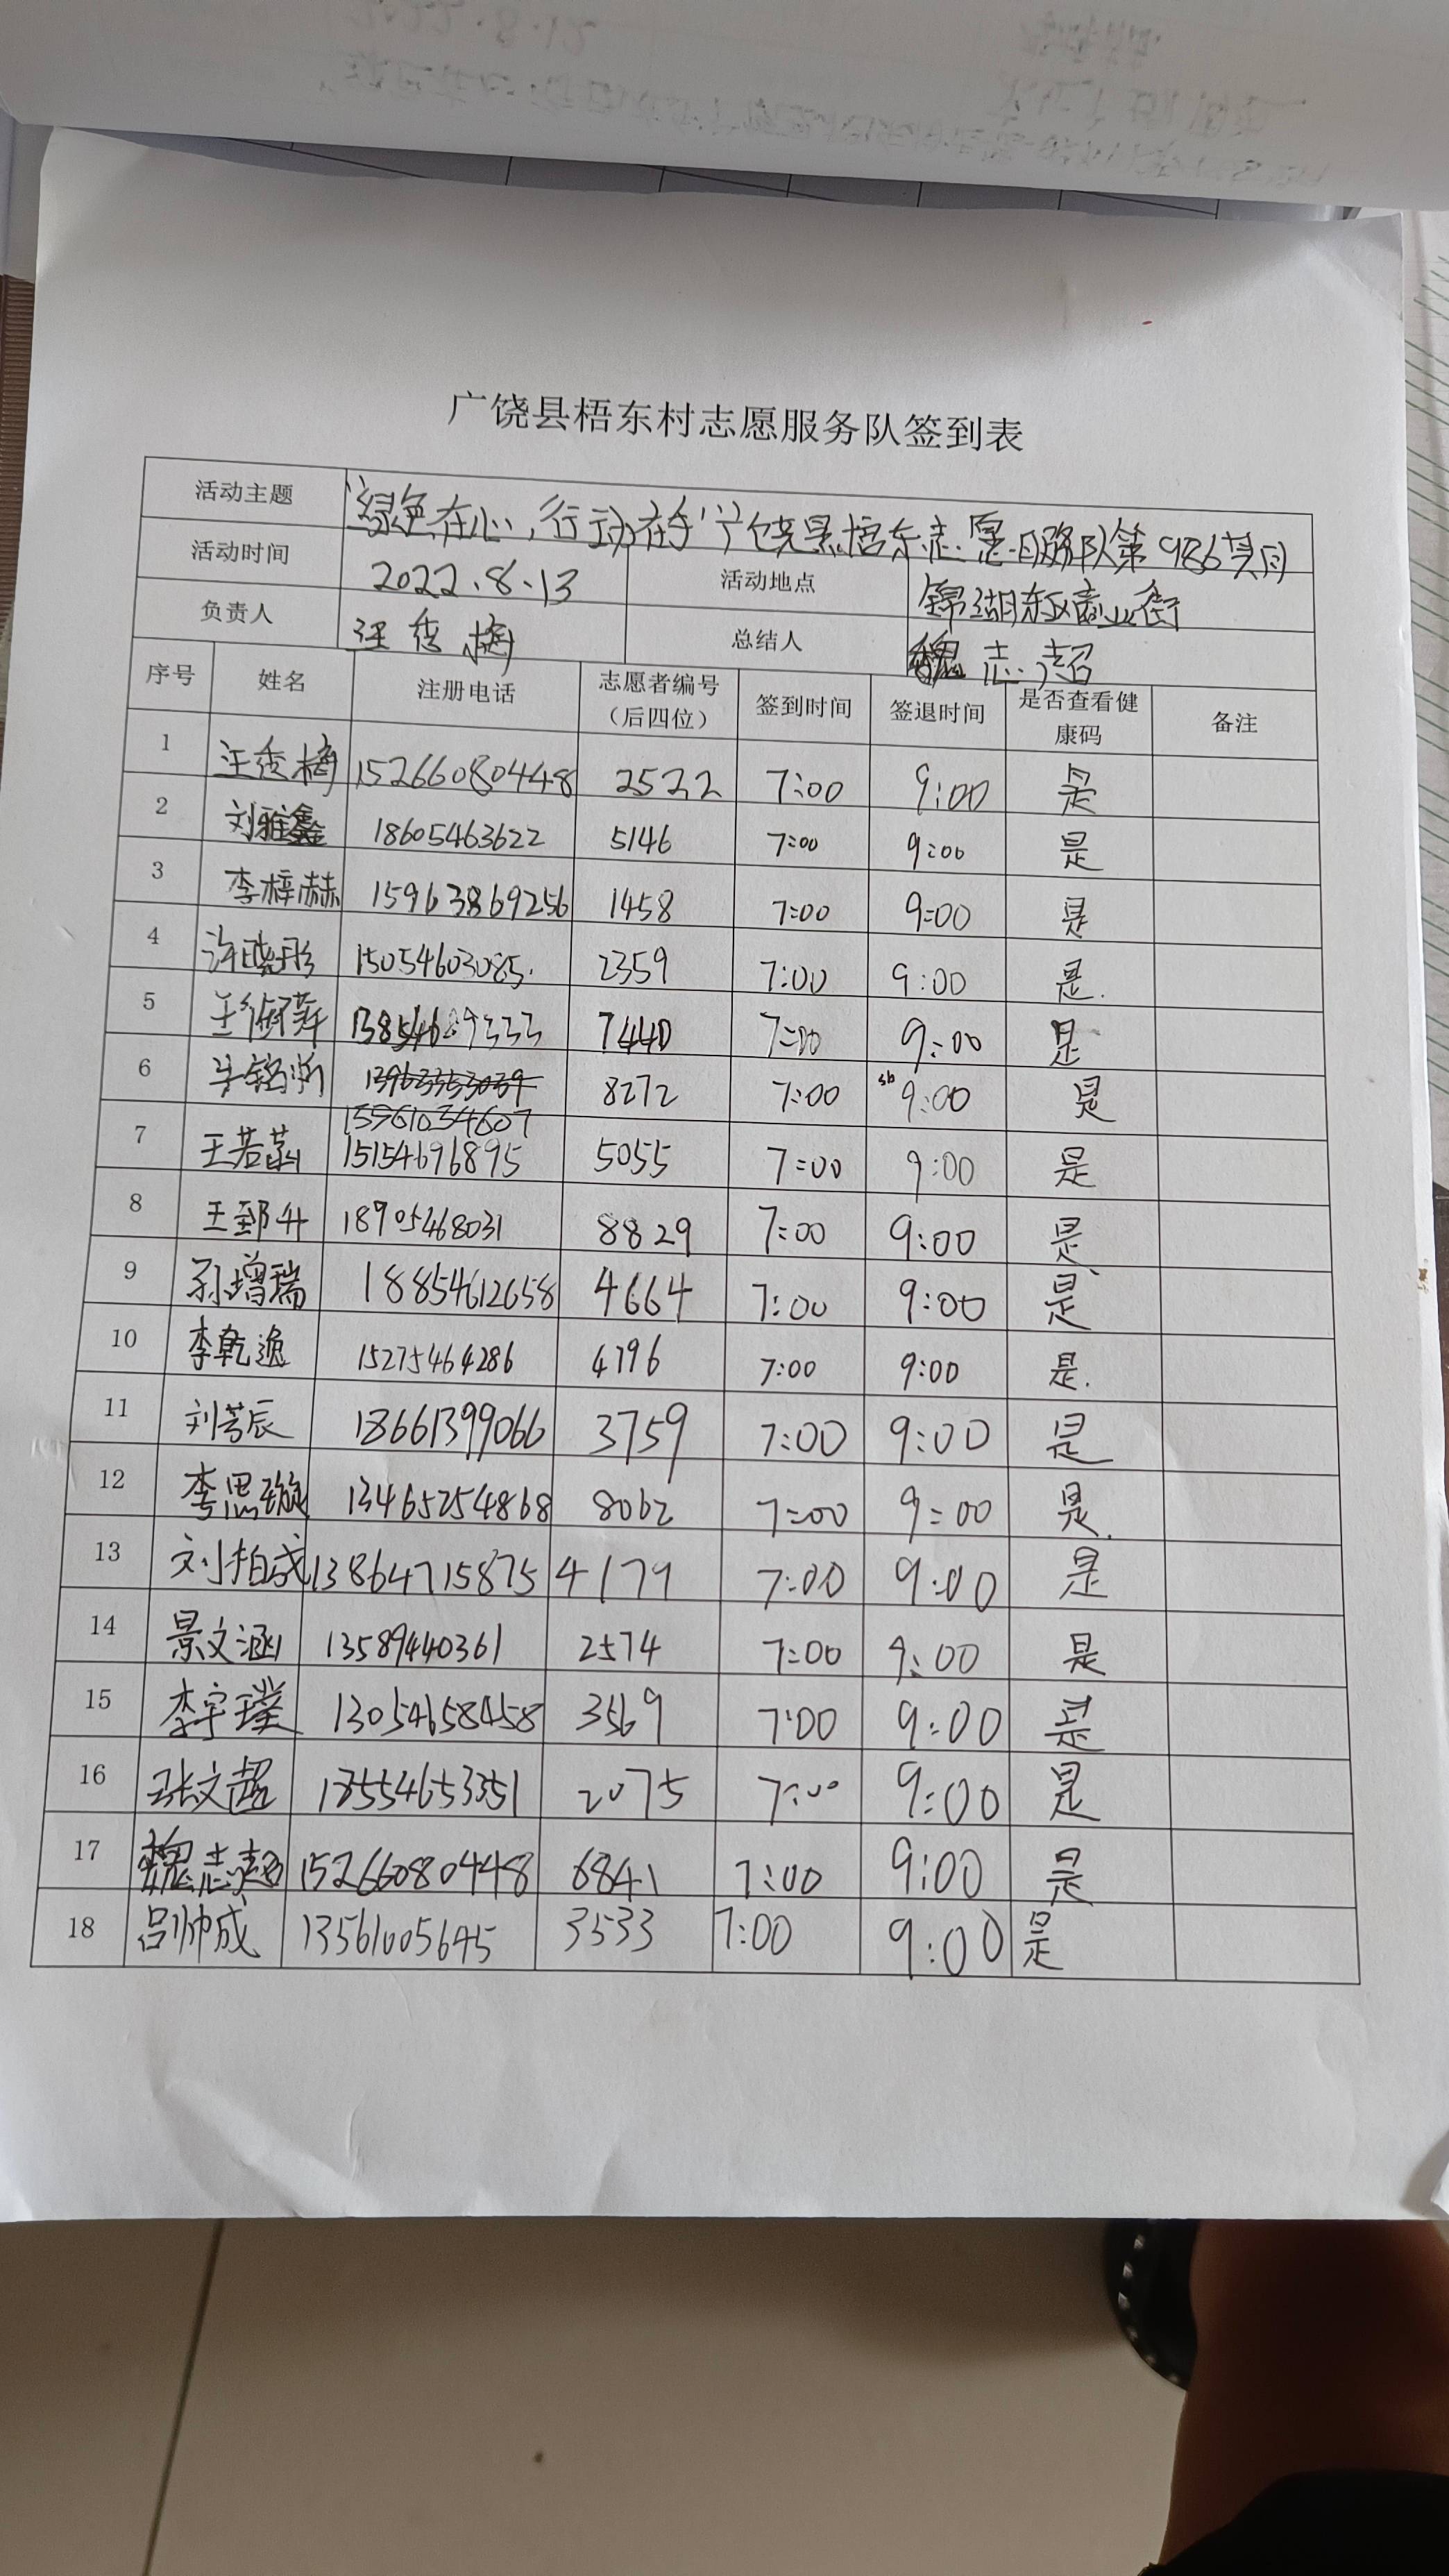 广饶县梧东村志愿服务队签到表
活动主题 "绿色在心,行动在手"广饶县梧东志愿服务队第986期
活动时间 2022.8.13 活动地点 锦湖东区商业街
负责人 汪秀梅 总结人 魏志超
序号 姓名 注册电话 志愿者编号(后四位) 签到时间 签退时间 是否查看健康码 备注
1 汪秀梅 15266080448 2522 7:00 9:00 是
2 刘雅鑫 18605463622 5146 7:00 9:00 是
3 李梓赫 15963869256 1458 7:00 9:00 是
4 许晓彤 15054603085. 2359 7:00 9:00 是.
5 7440 7:00 9:00 是
6 13963353039 8272 7:00 9:00 是
15961034607
7 王若菡 15154696895 5055 7:00 9:00 是
8 王郅升 18905468031 8829 7:00 9:00 是
9 孙增瑞 18854612658 4664 7:00 9:00 是
10 李乾逸 15275464286 4796 7:00 9:00 是.
11 刘芳辰 18661399066 3759 7:00 9:00 是
12 李思璇 13465254868 8062 7:00 9:00 是.
13 刘柏成 13864715875 4179 7:00 9:00 是
14 景文涵 13589440361 2574 7:00 9:00 是
15 李宇璞 13054658458 3569 7:00 9:00 是
16 张文超 18554653351 2075 7:00 9:00 是
17 魏志超 15266080448 6841 7:00 9:00 是
18 吕帅成 13561005645 3533 7:00 9:00 是